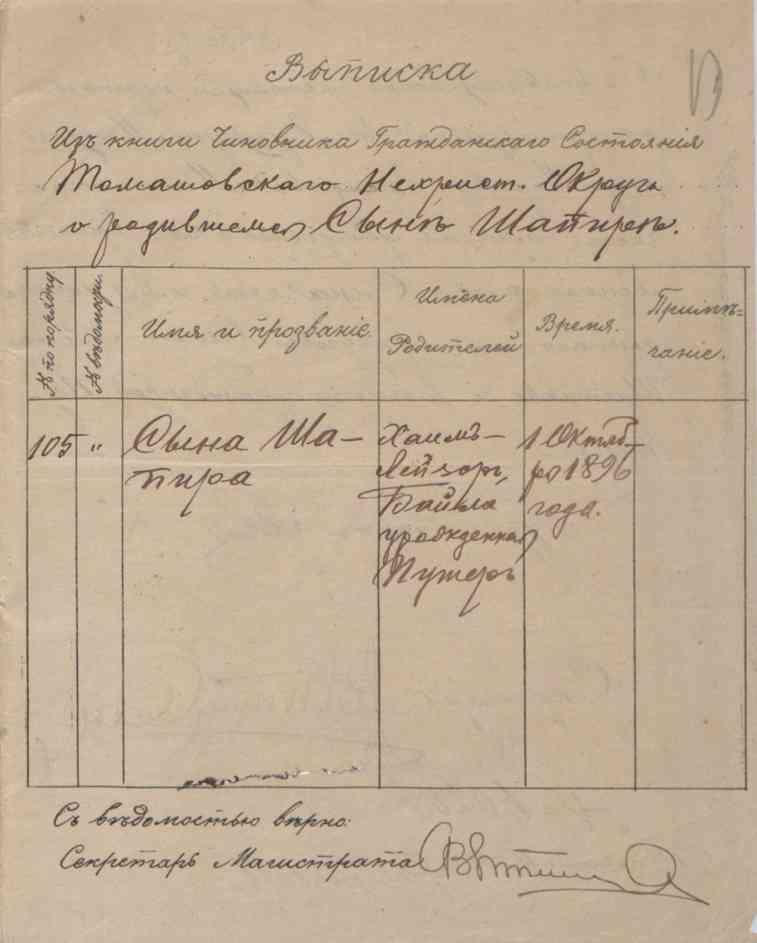 Выписка
Изъ книги Чиновника Гражданскаго Состоянія
Томашовскаго Нехрист. Округа
о родившемся Сынѣ Шапирѣ.
№ по порядку
№ вѣдомости.
Имя и прозваніе.
Имена
Родителей
Время.
Примѣ-
чаніе.
105 "
Сына Ша-
пира
Хаимъ-
Лейзоръ,
Байла
урожденная
1 Октяб-
ря 1896
года.
Съ вѣдомостью вѣрно:
Секретарь Магистрата